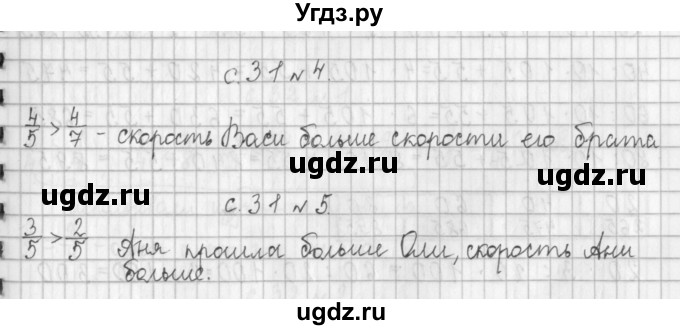 Угдз.ру
с.31 № 4.
4/5 > 4/7 - скорость Васи больше скорости его брата
ugdz.ru ugdz.ru
ugdz.ru ugdz.ru
с.31 № 5
3/5 > 2/5 Аня прошла больше Оли, скорость Ани
больше.
ugdz.ru
ugdz.ru